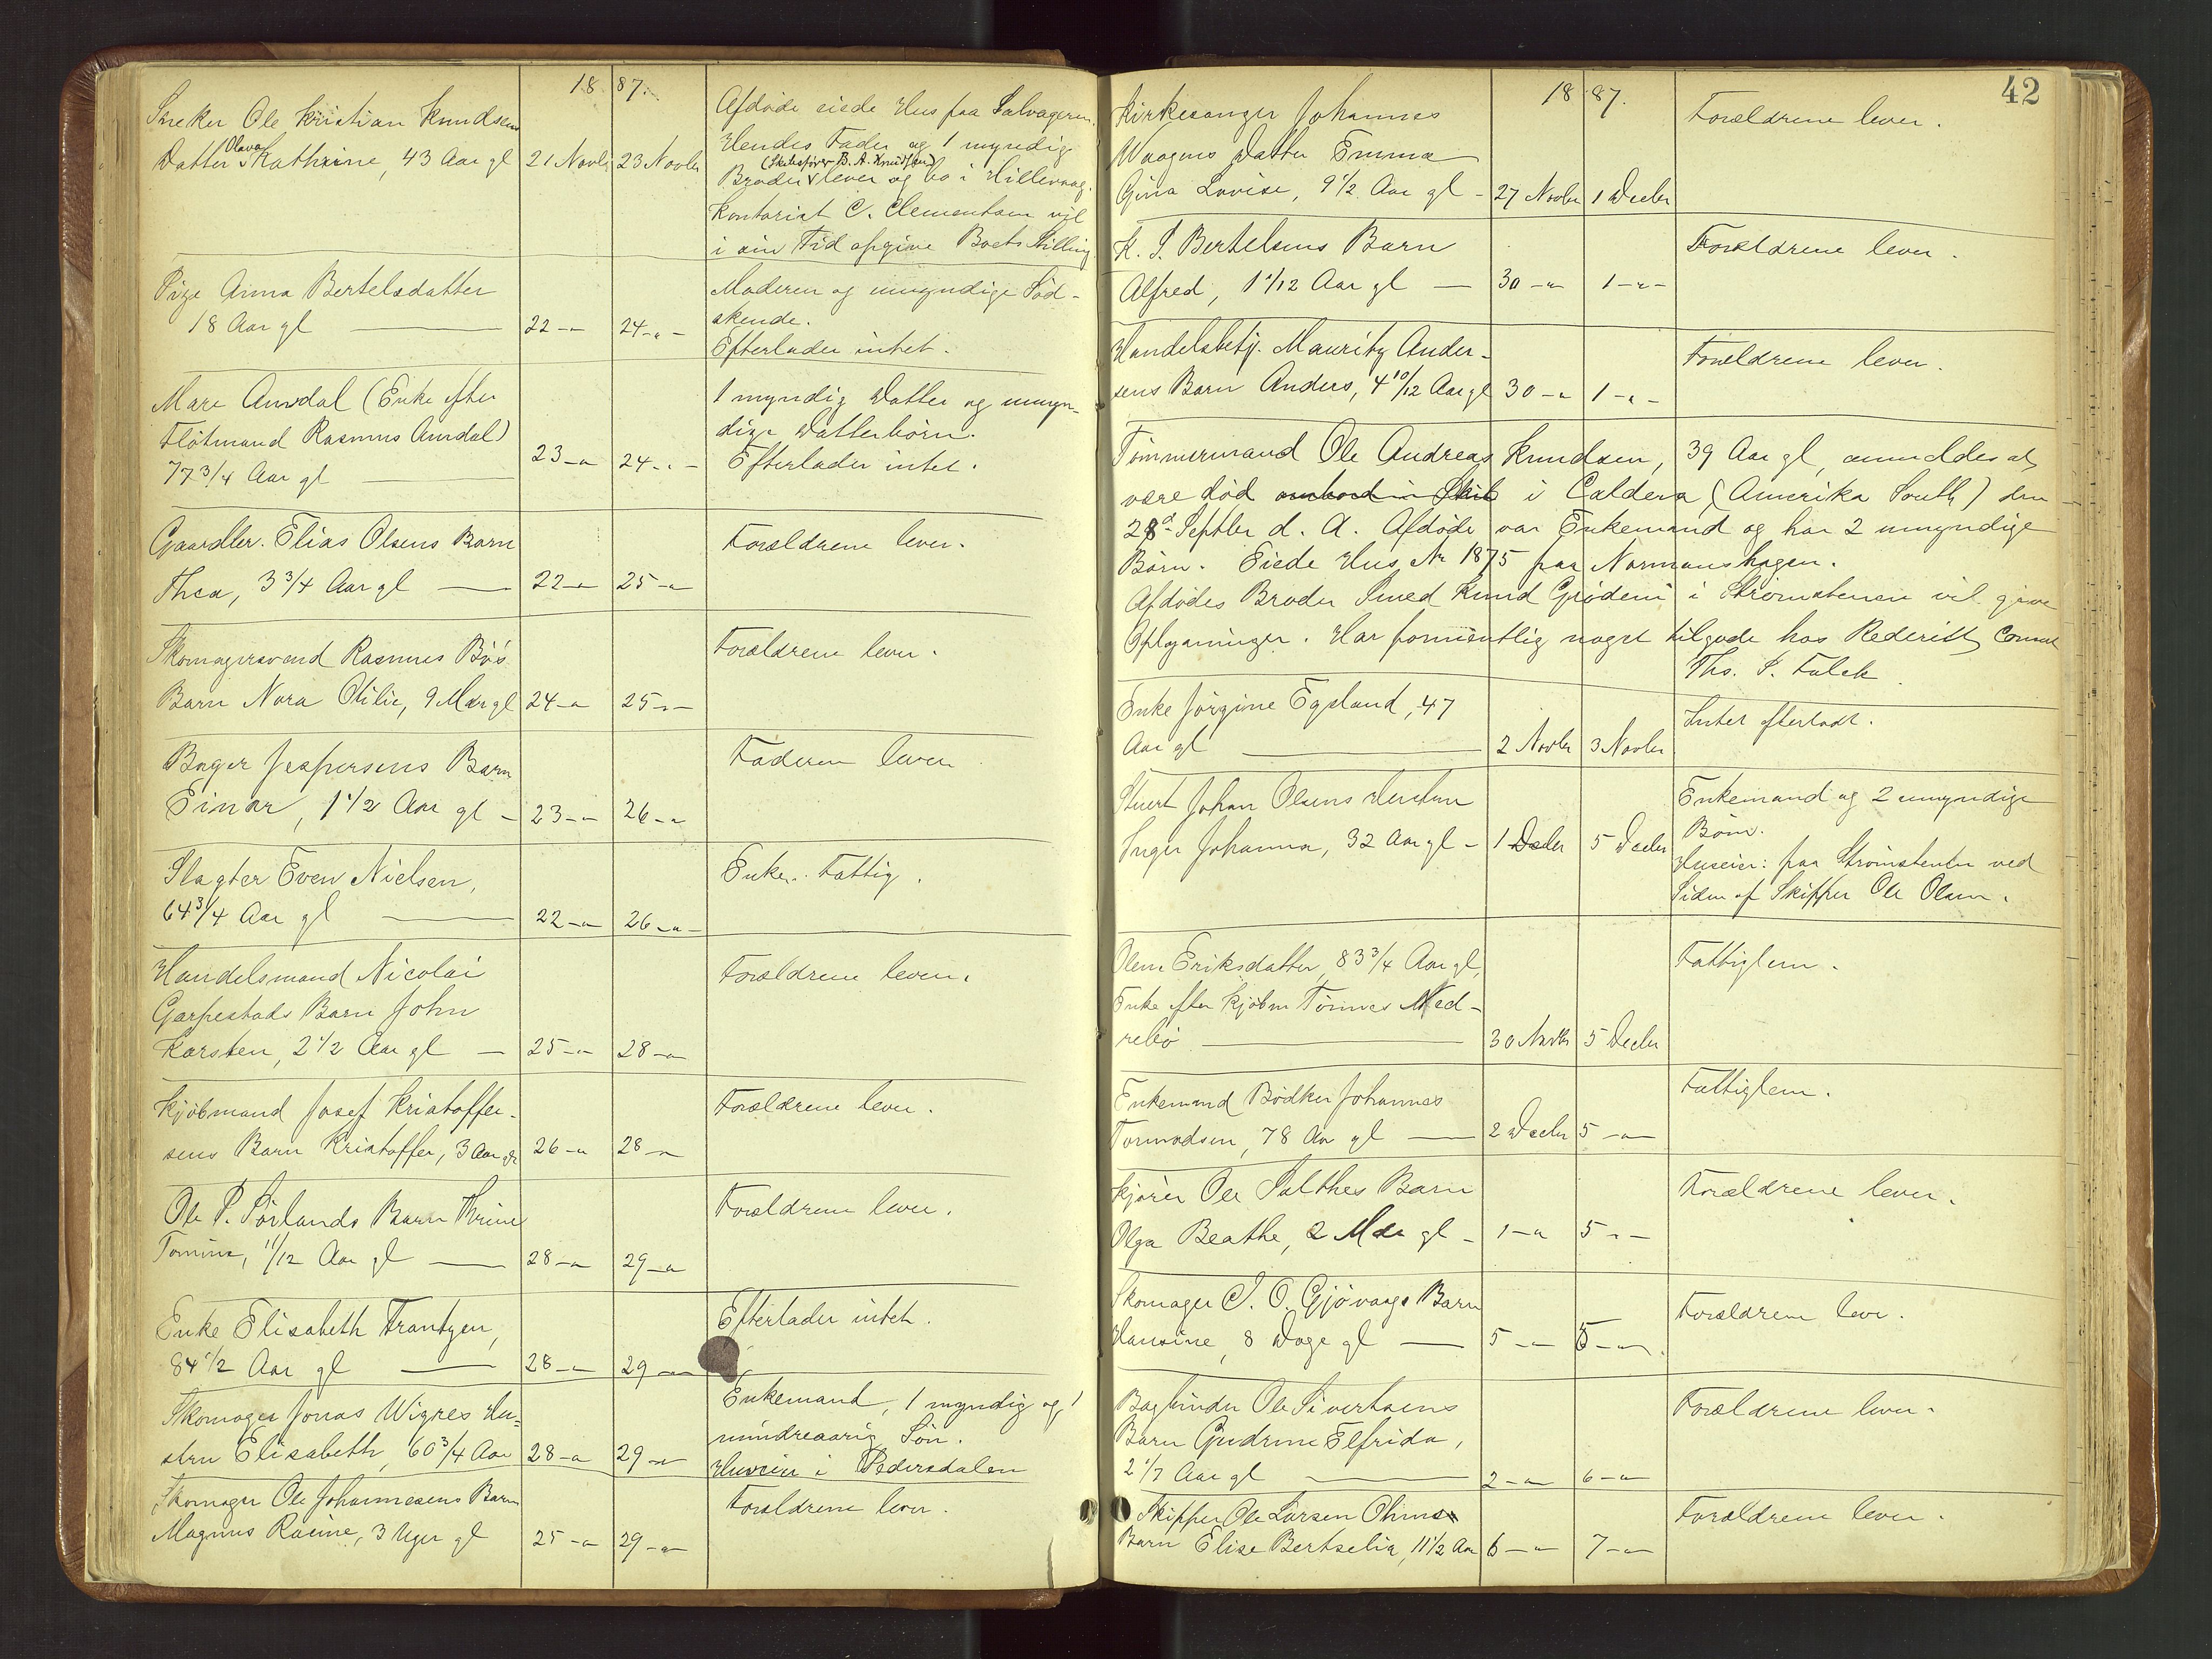 18 87.
Sneker Ole Kristian Knudsens
Datter Olava Kathrine, 43 Aar gl 21 Novbr 23 Novbr
Afdøde eiede Hus paa Solvageren.
Hendes Fader og 1 myndig
Broder (Skibsfører B. A. Knudsen) lever og bo i Hillevaag.
Kontorist C. Clementsen vil
i sin Tid opgive Boets Stilling.
Pige Anna Bertelsdatter
18 Aar gl 22 -"- 24 -"-
Moderen og umyndige Sød-
skende.
Efterlader intet.
Mare Aursdal (Enke efter
Flötmand Rasmus Aursdal)
77 3/4 Aar gl 23 -"- 24 -"-
1 myndig Datter og umyn-
dige Datterbörn.
Efterlader intet.
Gaardbr. Elias Olsens Barn
Thea, 3 3/4 Aar gl 22 -"- 25 -"-
Forældrene lever.
Skomagersvend Rasmus Bö's
Barn Nora Otilie, 9 Mdr gl 24 -"- 25 -"-
Forældrene lever.
Bager Jespersens Barn
Einar, 1 1/2 Aar gl - 23 -"- 26 -"-
Faderen lever
Slagter Even Nielsen,
64 3/4 Aar gl 22 -"- 26 -"-
Enke. Fattig.
Handelsmand Nicolai
Garpestads Barn John
Karsten, 2 1/2 Aar gl - 25 -"- 28 -"-
Forældrene lever.
Kjöbmand Josef Kristoffer-
sens Barn Kristoffer, 3 Aar gl 26 -"- 28 -"-
Forældrene lever.
Ole P. Sörlands Barn Thrine
Tomine, 11/12 Aar gl 28 -"- 29 -"-
Forældrene lever.
Enke Elisabeth Frantzen,
84 1/2 Aar gl 28 -"- 29 -"-
Efterlader intet.
Skomager Jonas Wigres Hu-
stru Elisabeth, 60 3/4 Aar 28 -"- 29 -"-
Enkemand, 1 myndig og 1
mindreaarig Sön.
Huseier i Pedersdalen
Skomager Ole Johannesens Barn
Magnus Rasine, 3 Uger gl 25 -"- 29 -"-
Forældrene lever.
42
18 87.
Kirkesanger Johannes
Waagens Datter Emma
Gina Lovise, 9 1/2 Aar gl - 27 Novbr 1 Decbr
Forældrene lever.
K. S. Bertelsens Barn
Alfred, 1 1/12 Aar gl - 30 -"- 1 -"-
Forældrene lever.
Handelsbetj. Mauritz Ander-
sens Barn Anders, 4 10/12 Aar gl 30 -"- 1 -"-
Forældrene lever.
Tömmermand Ole Andreas Knudsen, 39 Aar gl, anmeldes at
være död ombord i Skib i Caldera, (Amerika South) den
28d Septbr d. A. Afdöde var Enkemand og har 2 umyndige
Börn. Eiede Hus No 1875 paa Normanshagen.
Afdödes Broder Smed Knud Grödem i Strömstenen vil give
Oplysninger. Har formentlig noget tilgode hos Rederiet, Consul
Ths. S. Falck
Enke Jörgine Egeland, 47
Aar gl 2 Novbr 3 Novbr
Intet efterladt.
Stuert Johan Olsens Hustru
Inger Johanna, 32 Aar gl - 1 Decbr 5 Decbr
Enkemand og 2 umyndige
Börn.
Huseier: paa Strömstenen ved
Siden af Skipper Ole Olsen.
Olene Eriksdatter, 83 3/4 Aar gl,
Enke efter Kjöbm Tönnes Ned-
rebö 30 Novbr 5 Decbr
Fattiglem.
Enkemand Bödker Johannes
Tormodsen, 78 Aar gl 2 Decbr 5 -"-
Fattiglem.
Kjörer Ole Salthes Barn
Olga Beathe, 2 Mdr gl - 1 -"- 5 -"-
Forældrene lever.
Skomager S. O. Gjövaags Barn
Hansine, 8 Dage gl 5 -"- 5 -"-
Forældrene lever.
Bogbinder Ole Sivertsens
Barn Gudrun Elfrida,
2 1/2 Aar gl 2 -"- 6 -"-
Forældrene lever.
Skipper Ole Larsen Ohms
Barn Elise Bertselia, 11 1/2 Aar 6 -"- 7 -"-
Forældrene lever.